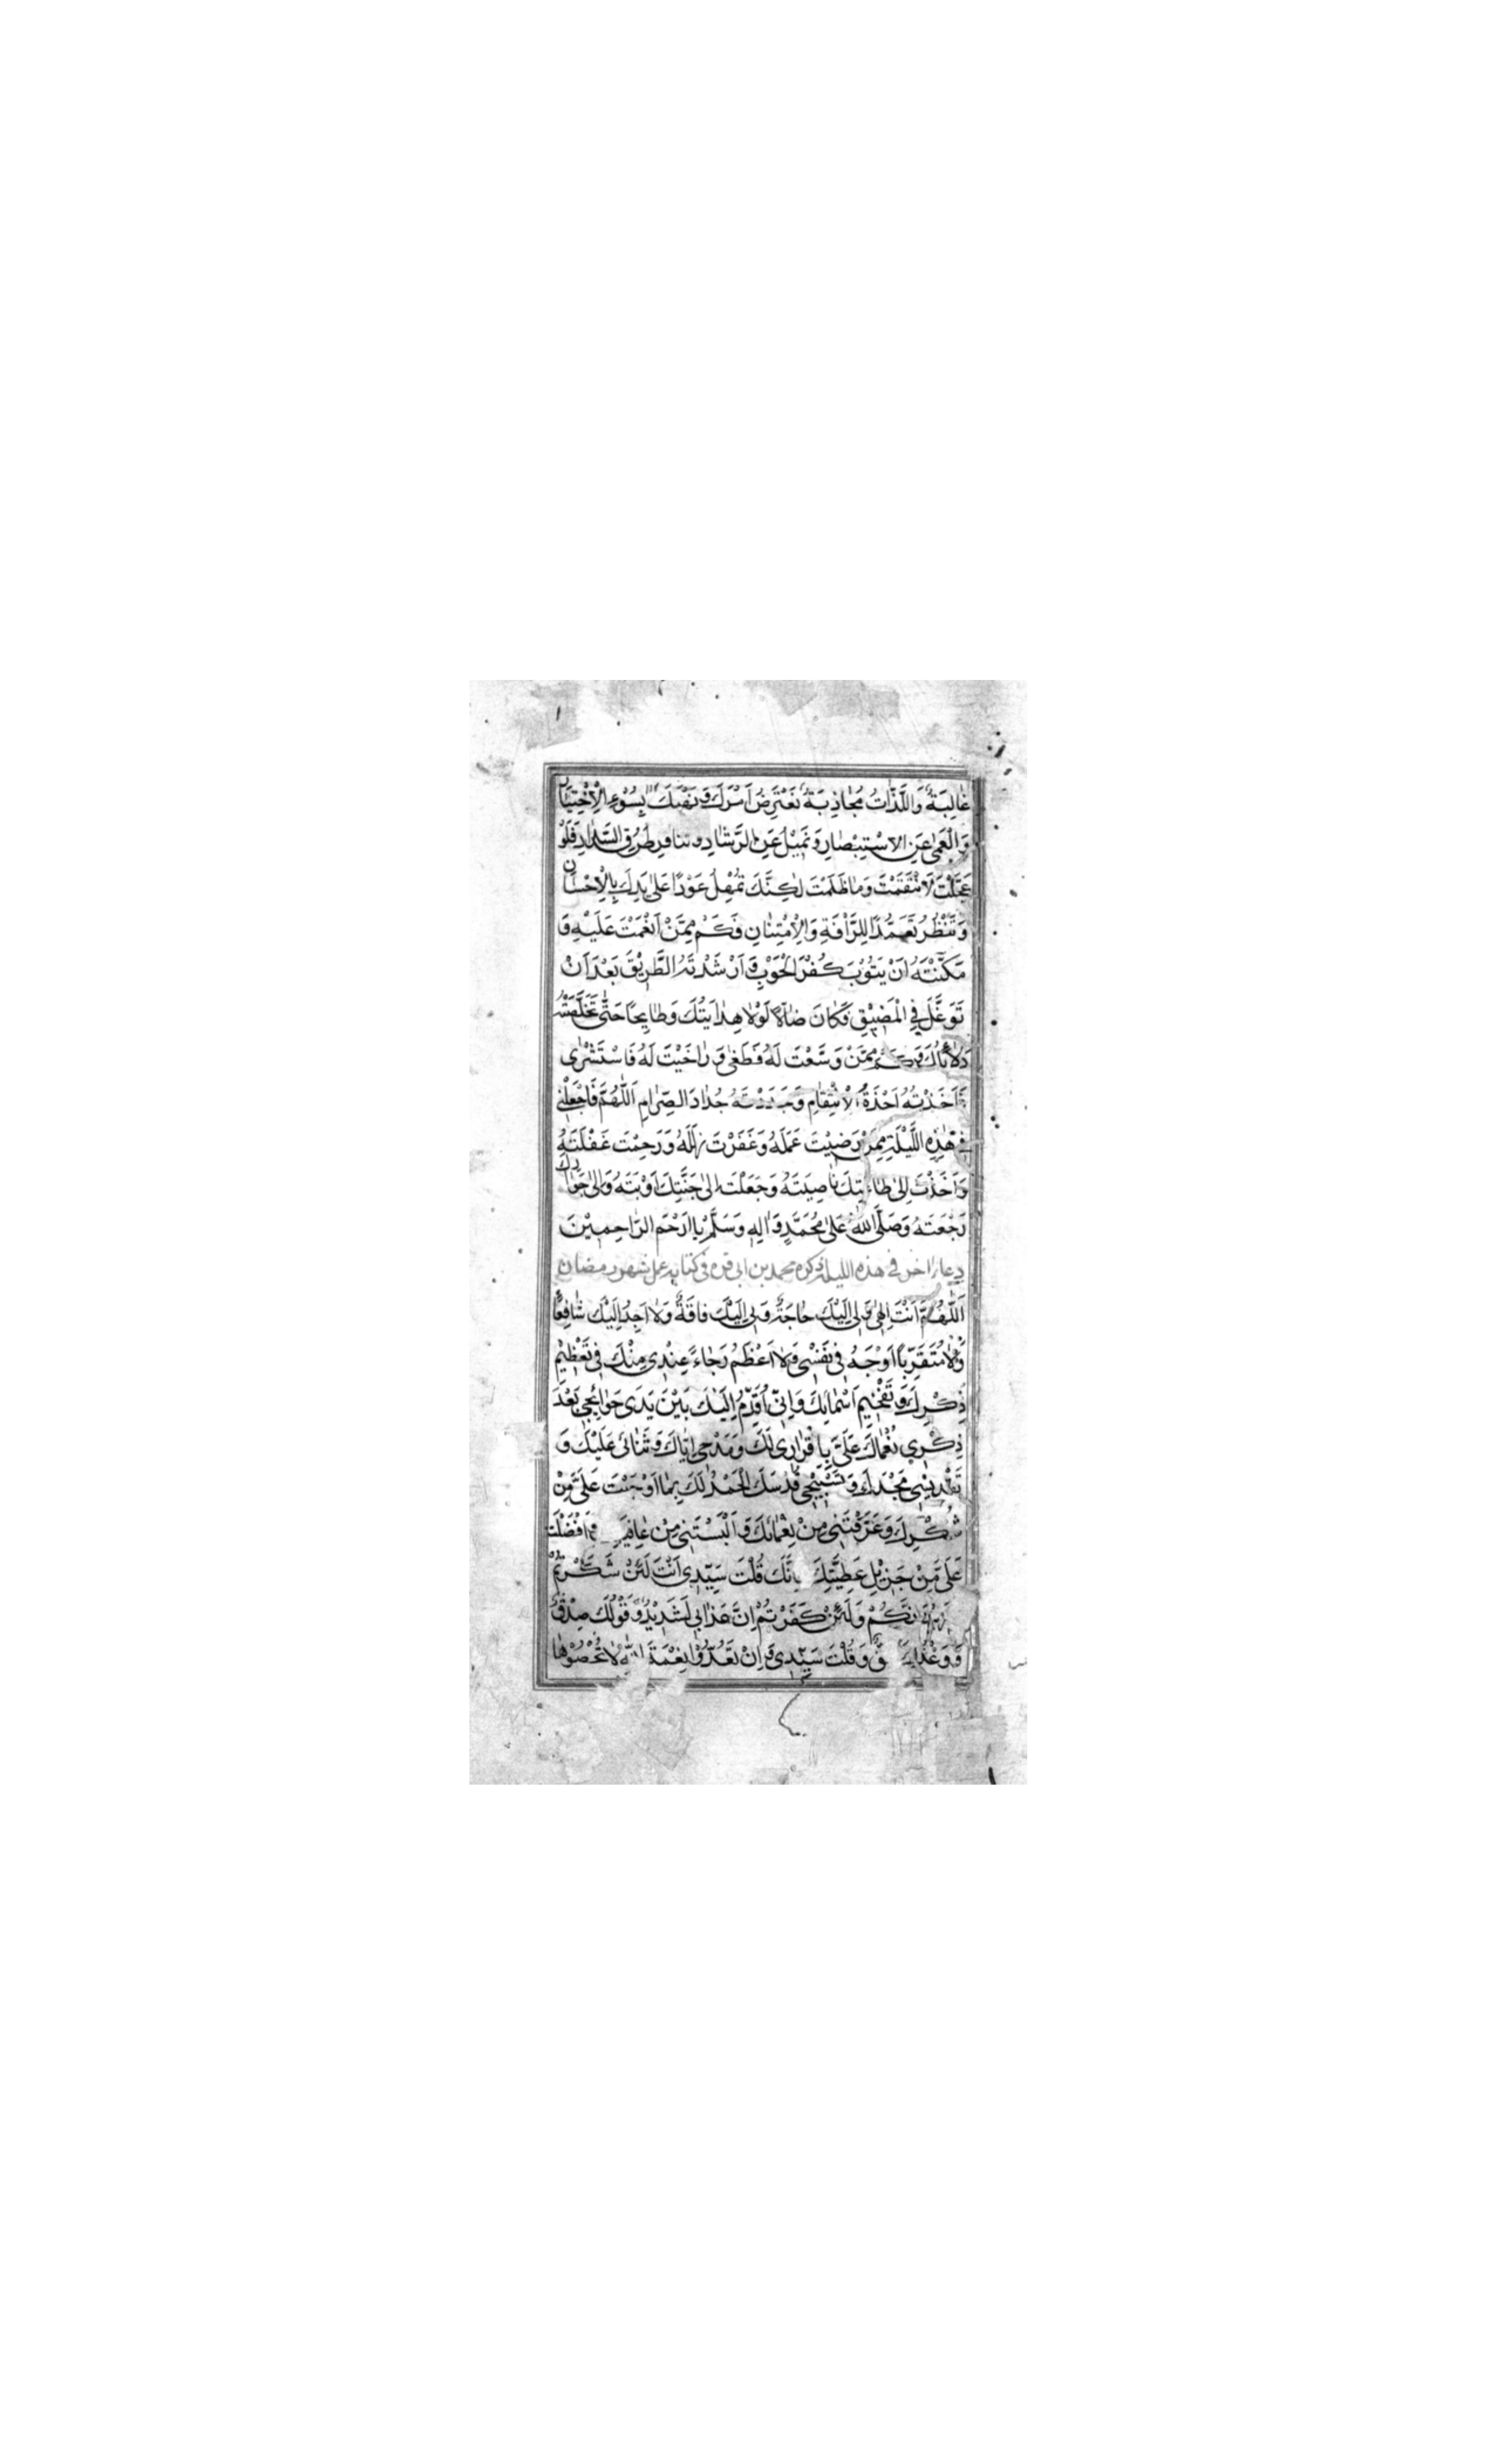 غَالِبَةٌ وَاللَّذَّاتُ مُجَاذِبَةٌ نَعْتَرِضُ اَمْرَكَ وَنَهْيَكَ بِسُوْءِ الْاِخْتِيَارِ
وَالْعَمٰى عَنِ الْاِسْتِبْصَارِ وَنَمِيْلُ عَنِ الرَّشَادِ وننافر طُرُقِ السَّدَادِ فَلَوْ
عَجَّلْتَ لَانْتَقَمْتَ وَمَا ظَلَمْتَ لٰكِنَّكَ تُمْهِلُ عَوْدًا عَلٰى يَدِكَ بِالْاِحْسَانِ
وَتُنْظِرُ تَغَمُّدًا لِلرَّأْفَةِ وَالْاِمْتِنَانِ فَكَمْ مِمَّنْ اَنْعَمْتَ عَلَيْهِ وَ
مَكَّنْتَهُ اَنْ يَتُوْبَ كُفْرَ الْحَوْبِ وَاَرْشَدْتَهُ الطَّرِيْقَ بَعْدَ اَنْ
تَوَغَّلَ فِي الْمَضِيْقِ فَكَانَ ضَالًّا لَوْلَا هِدَايَتُكَ وَطَايِحًا حَتّٰى تَخَلَّصَتْهُ
دَلَائِلُكَ وَكَمْ مِمَّنْ وَسَّعْتَ لَهُ فَطَغٰى وَرَاخَيْتَ لَهُ فَاسْتَشْرٰى
فَاَخَذْتَهُ اَخْذَةَ الْاِنْتِقَامِ وَجَذَذْتَهُ جُذَاذَ الصِّرَامِ اَللّٰهُمَّ فَاجْعَلْنِيْ
فِيْ هٰذِهِ اللَّيْلَةِ مِمَّنْ رَضِيْتَ عَمَلَهُ وَغَفَرْتَ زَلَلَهُ وَرَحِمْتَ غَفْلَتَهُ
وَاَخَذْتَ اِلٰى طَاعَتِكَ نَاصِيَتَهُ وَجَعَلْتَ اِلٰى جَنَّتِكَ اَوْبَتَهُ وَاِلٰى جِوَارِكَ
رَجْعَتَهُ وَصَلَّى اللّٰهُ عَلٰى مُحَمَّدٍ وَاٰلِهِ وَسَلَّمْ يَا اَرْحَمَ الرَّاحِمِيْنَ
دعاء اخر في هذه الليلة ذكره محمد بن ابي قره في كتابه عمل شهر رمضان
اَللّٰهُمَّ اَنْتَ اِلٰهِيْ وَلِيْ اِلَيْكَ حَاجَةٌ وَبِيْ اِلَيْكَ فَاقَةٌ وَلَا اَجِدُ اِلَيْكَ شَافِعًا
وَلَا مُتَقَرِّبًا اَوْجَهَ فِيْ نَفْسِيْ وَلَا اَعْظَمَ رَجَاءً عِنْدِيْ مِنْكَ فِيْ تَعْظِيْمِ
ذِكْرِكَ وَتَفْخِيْمِ اَسْمَائِكَ وَاِنِّيْ اُقَدِّمُ اِلَيْكَ بَيْنَ يَدَيْ حَوَائِجِيْ بَعْدَ
ذِكْرِيْ نُعْمَاكَ عَلَيَّ بِاِقْرَارِيْ لَكَ وَمَدْحِيْ اِيَّاكَ وَثَنَائِيْ عَلَيْكَ وَ
تَقْدِيْسِيْ مَجْدَكَ وَتَسْبِيْحِيْ قُدْسَكَ الْحَمْدُ لَكَ بِمَا اَوْجَبْتَ عَلَيَّ مِنْ
شُكْرِكَ وَعَرَّفْتَنِيْ مِنْ نِعْمَائِكَ وَاَلْبَسْتَنِيْ مِنْ وَاَفْضَلْتَ
عَلَيَّ مِنْ جَزِيْلِ عَطِيَّتِكَ فَاِنَّكَ قُلْتَ سَيِّدِيْ اَنْتَ لَئِنْ شَكَرْتُمْ
لَاَزِيْدَنَّكُمْ وَلَئِنْ كَفَرْتُمْ اِنَّ عَذَابِيْ لَشَدِيْدٌ وَقَوْلُكَ صِدْقٌ
وَوَعْدُكَ حَقٌّ وَقُلْتَ سَيِّدِيْ وَاِنْ تَعُدُّوْا نِعْمَةَ اللّٰهِ لَا تُحْصُوْهَا